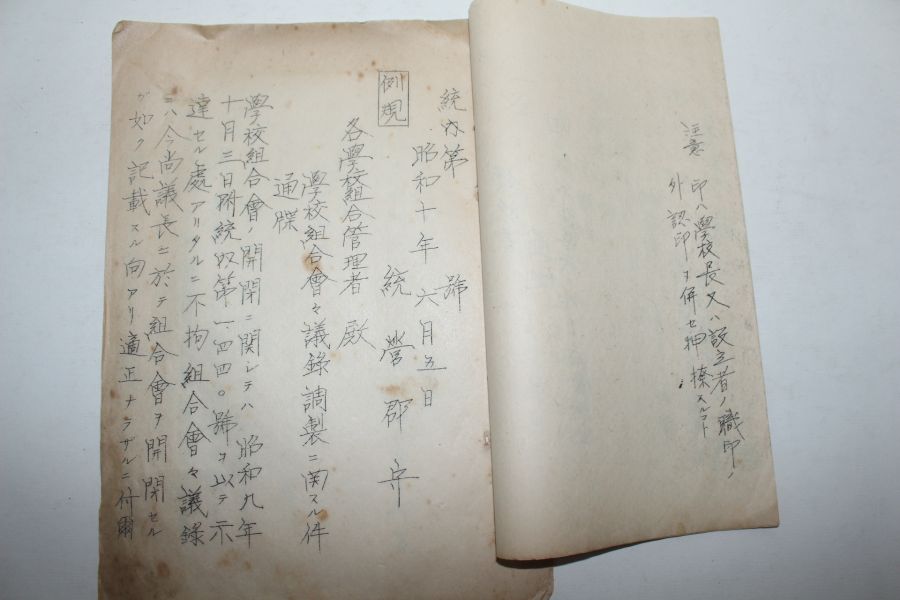 注意 印ハ學校長又ハ設立者ノ職印ノ
外認印ヲ併セ押捺スルコト
統内第 號
昭和十年六月五日
統營郡守
例規
各學校組合管理者 殿
學校組合會々議錄調製ニ関スル件
通牒
學校組合會ノ開閉ニ関シテハ昭和九年
十月三日附統収第一四四〇號ヲ以テ示
達セル處アリタルニ不拘組合會々議錄
ニハ今尚議長ニ於テ組合會ヲ開閉セル
ガ如ク記載スル向アリ適正ナラザルニ付爾